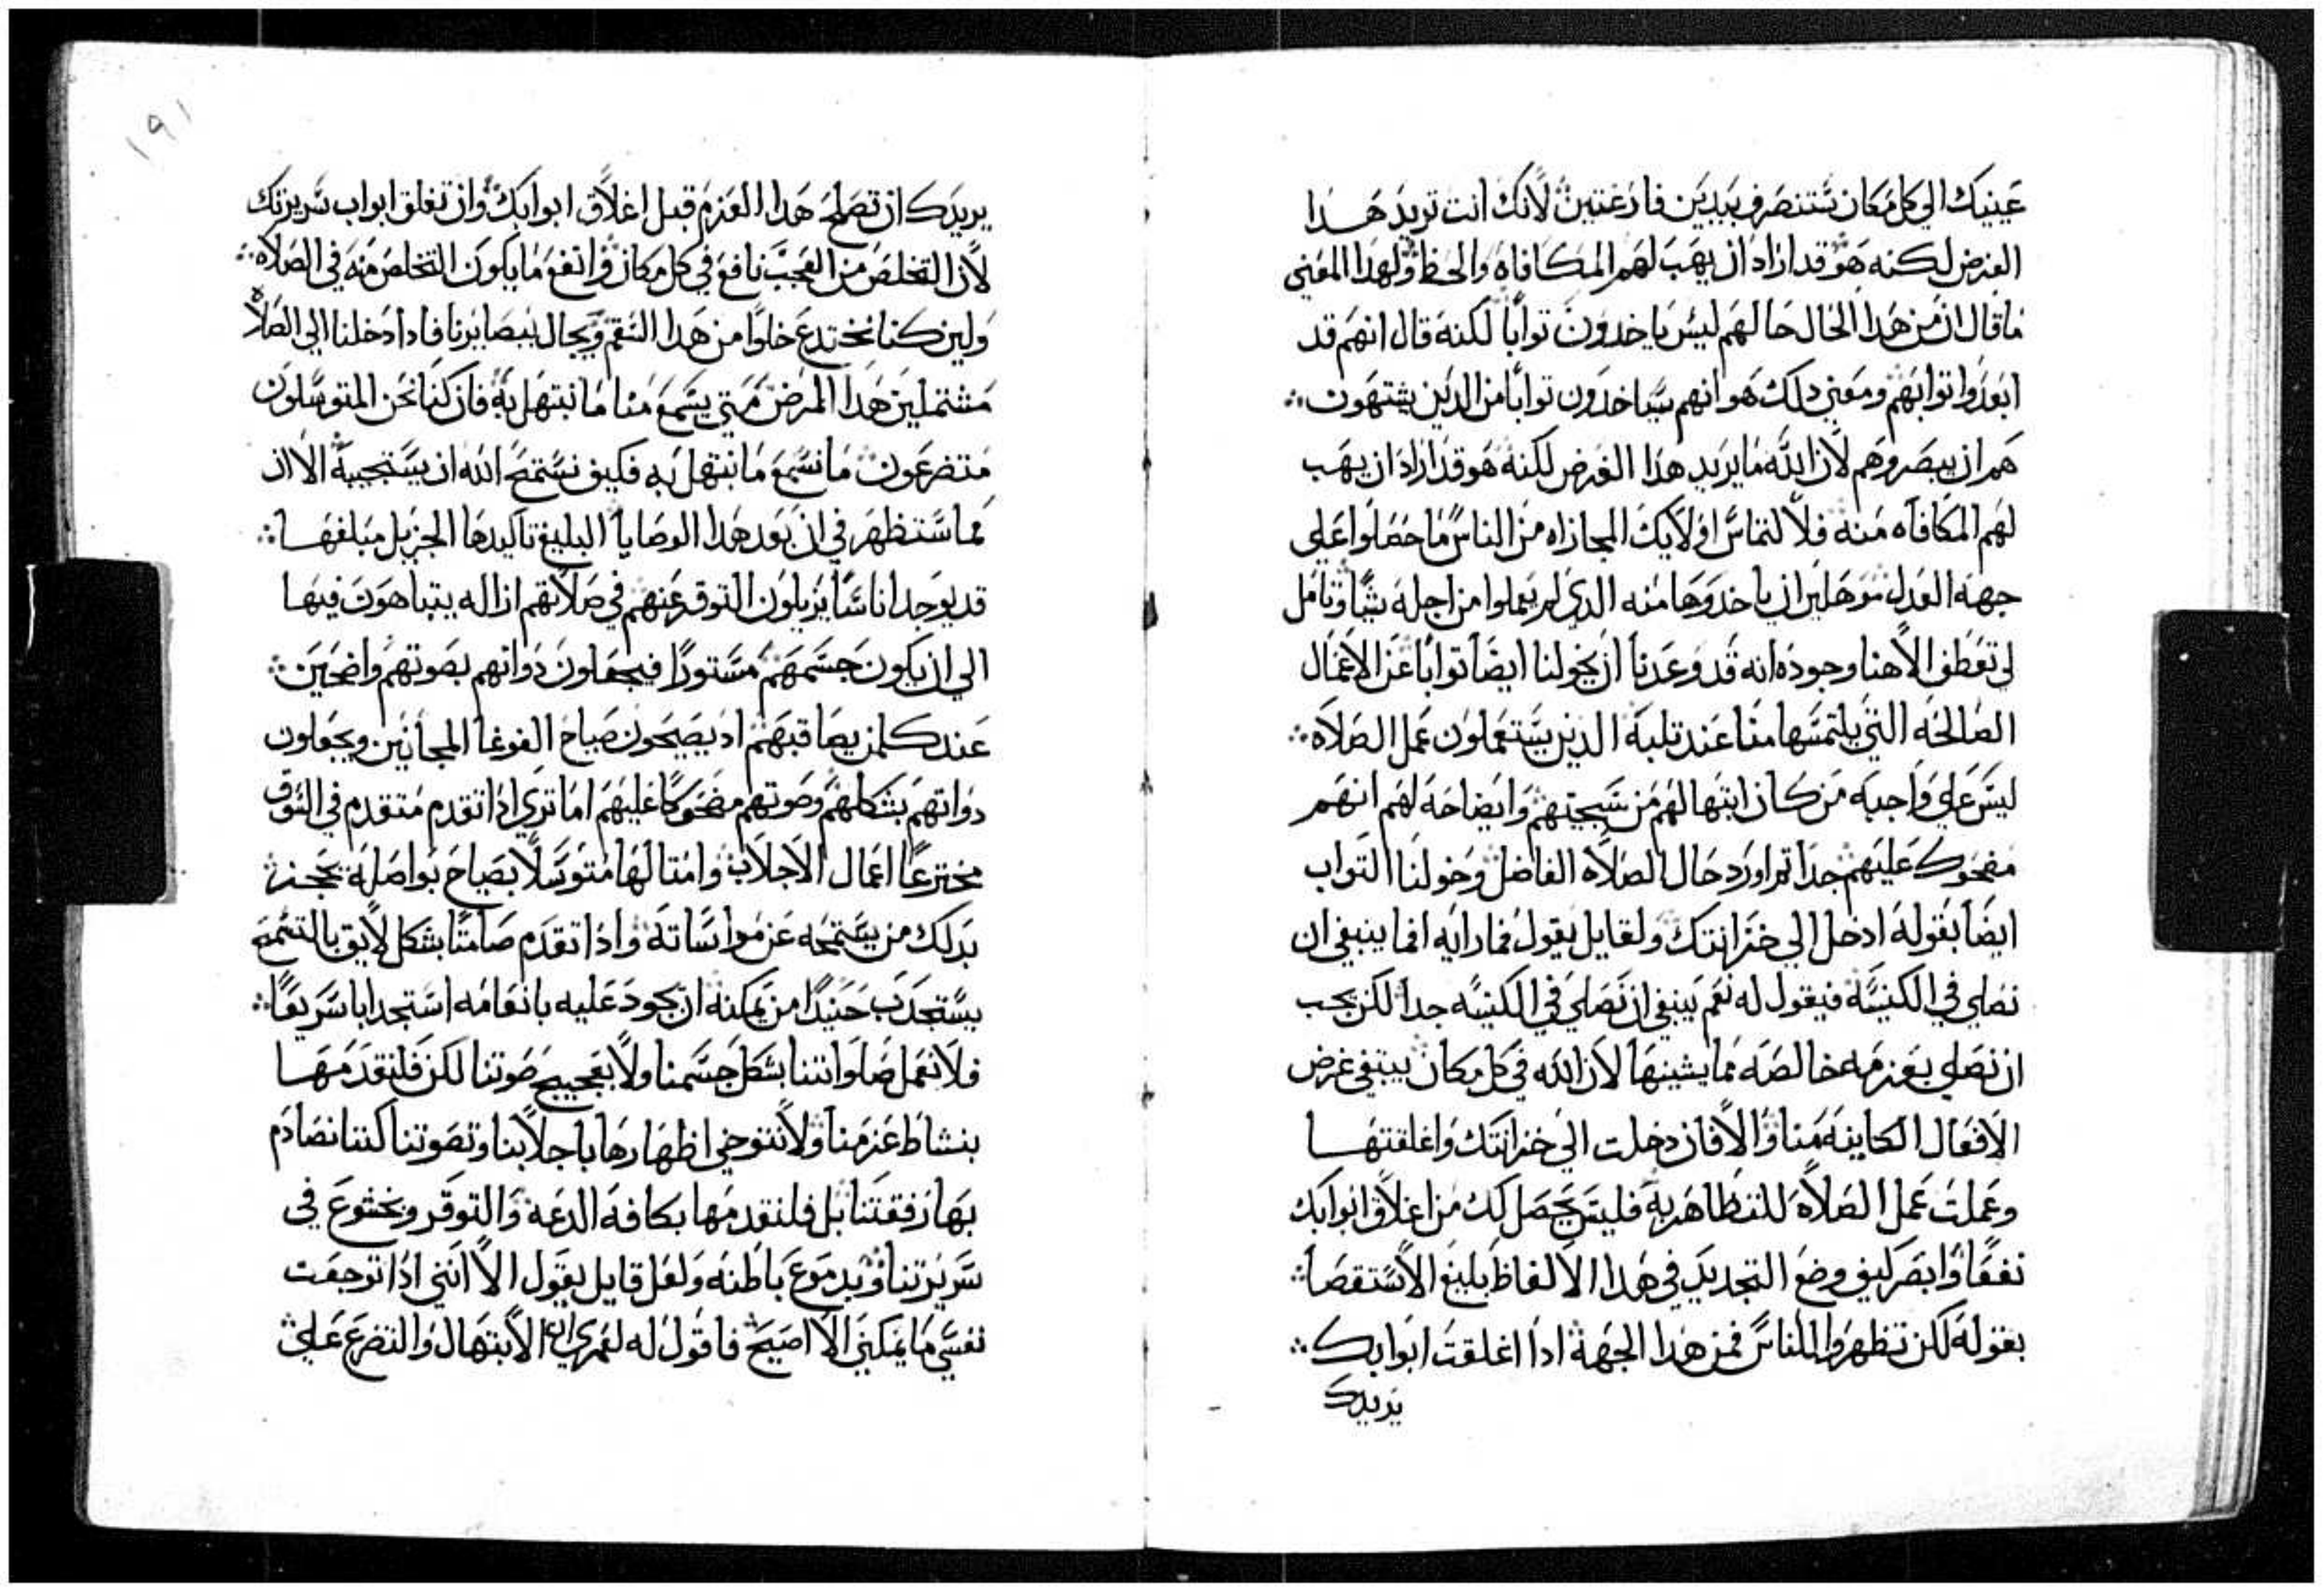 عينيك الي كل مكان ستنصرف بيدين فارغتين لانك انت تريد هدا
الغرض لكنه هو قد اراد ان يهب لهم المكافاه والحظ ولهدا المعني
ما قال ان من هدا الحال حالهم ليس ياخدون توابا لكنه قال انهم قد
ابعدوا توابهم ومعني دلك هو انهم سياخدون توابا من الدين يشتهون
هم ان يبصروهم لان الله ما يريد هدا الغرض لكنه هو قد اراد ان يهب
لهم المكافاه منه فلالتماس اولايك المجازاه من الناس ما حصلوا علي
جهة العدل موهلين ان ياخدوها منه الدي لم يعملوا من اجله شيا وتامل
لي تعطف الاهنا وجوده انه قد وعدنا ان يخولنا ايضا توابا عن الاعمال
الصالحه التي يلتمسها منا عند تلبه الدين يستعملون عمل الصلاه
ليس علي واجبه من كان ابتهالهم من سجيتهم وايضاحه لهم انهم
مضحوك عليهم جدا تم اورد حال الصلاه الفاضل وخولنا التواب
ايضا بقوله ادخل الي خزانتك ولقايل يقول فما رايه افما ينبغي ان
نصلي في الكنيسه فنقول له نعم ينبغي ان نصلي في الكنيسه جدا لكن يجب
ان نصلي بعزمه خالصه مما يشينها لان الله في كل مكان يبتغي غرض
الافعال الكاينه منا والا فان دخلت الي خزانتك واغلقتها
وعملت عمل الصلاه للتظاهر به فليس يحصل لك من اغلاق ابوابك
نفعا وابصر كيف وضع التحديد في هدا الالفاظ بليغ الاستقصا
بقوله لكن تظهروا للناس فمن هدا الجهة ادا اغلقت ابوابك
يريدك
١٩١
يريدك ان تصلح هدا العزم قبل اغلاق ابوابك وان تغلق ابواب سريرتك
لان التخلص من العجب نافع في كل مكان وانفع ما يكون التخلص منه في الصلاه
ولين كنا نختدع خلوا من هدا السقم ويجال ببصايرنا فادا دخلنا الي الصلاه
مشتملين هدا المرض متي يسمع منا ما نبتهل به فان كنا نحن المتوسلون
متضرعون ما نسمع ما نبتهل به فكيف نستمح الله ان يستجيبه الا ان
مما ستظهر في ان بعد هدا الوصايا البليغ تاكيدها الجزيل مبلغها
قد يوجد اناسا يزيلون التوقر عنهم في صلاتهم ازاله يتباهون فيها
الي ان يكون جسمهم مستورا فيجعلون دواتهم بصوتهم واضحين
عند كلمن يصاقبهم اد يصيحون صياح الغوغا المجانين ويجعلون
دواتهم بشكلهم وصوتهم مضحوكا عليهم اما تري ادا تقدم متقدم في السوق
مخترعا اعمال الاجلاب وامتالها متوسلا بصياح بواصله يحجز
بدلك من يستمحه عن مواساته وادا تقدم صامتا بشكل لايق بالتسمح
يستجدب حنيدا من يمكنه ان يجود عليه بانعامه استجدابا سريعا
فلا نعمل صلواتنا بشكل جسمنا ولا بعجيج صوتنا لكن فلنقدمها
بنشاط عزمنا ولا نتوخي اظهارها باجلابنا وتصوتنا كننا نصادم
بها رفقتنا بل فلنقدمها بكافة الدعة والتوقر وبخشوع في
سريرتنا وبدموع باطنه ولعل قايل يقول الا انني ادا توجعت
نفسي ما يمكنني الا اصيح فاقول له لعمري ان الابتهال والتضرع علي